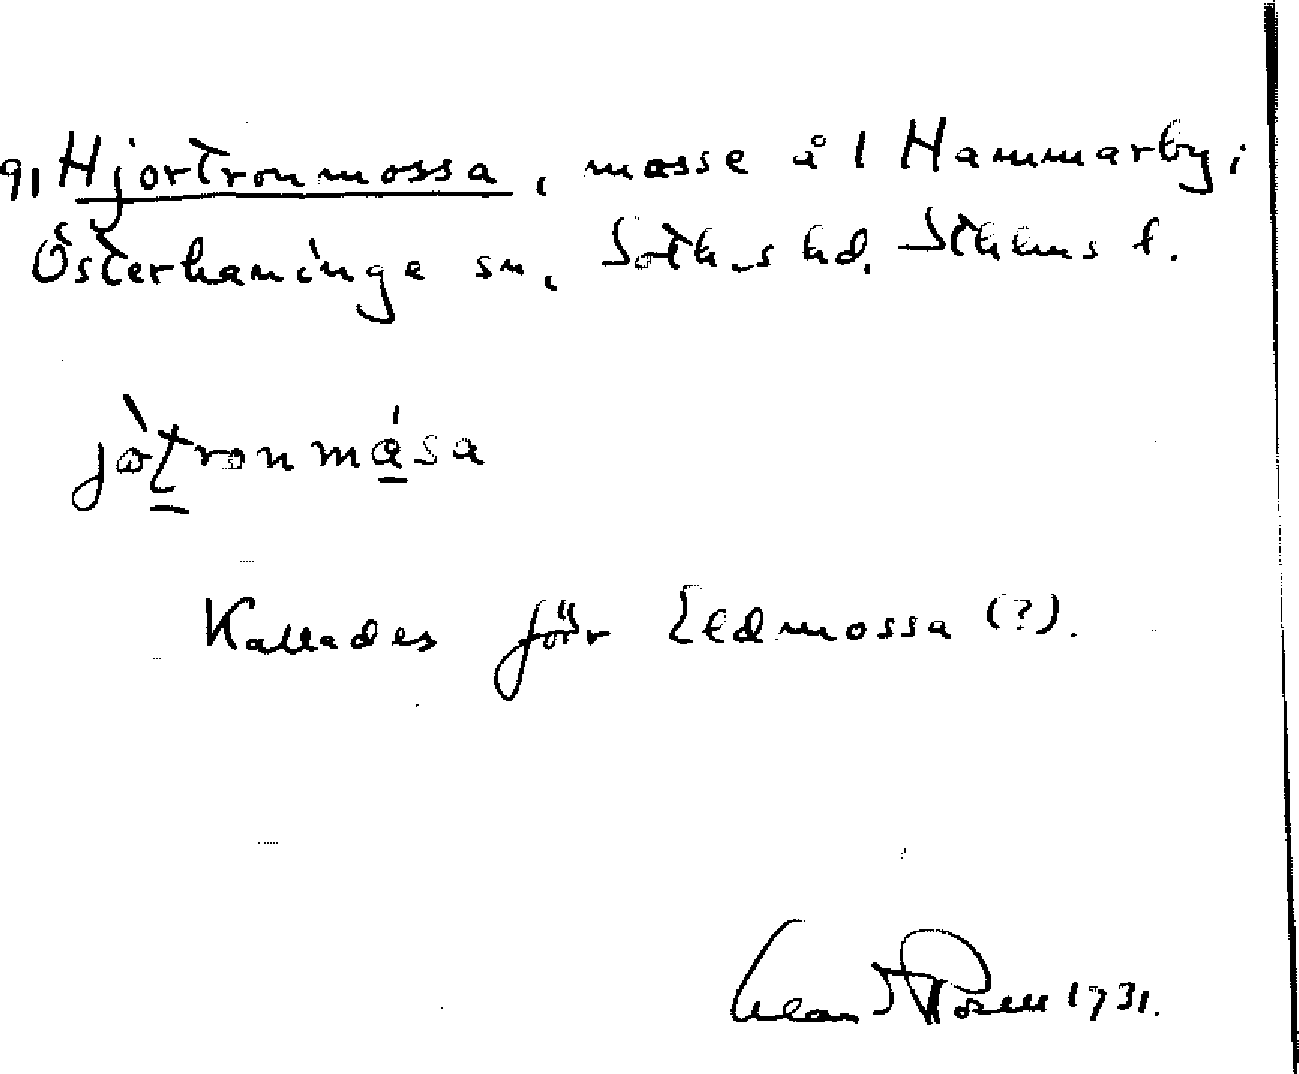 91 Hjortronmossa, mosse å 1 Hammarby i
Österhaninge sn, Soth.s hd. Sthlms l.
jòtronmása
Kallades förr Eldmossa (?).
1931.